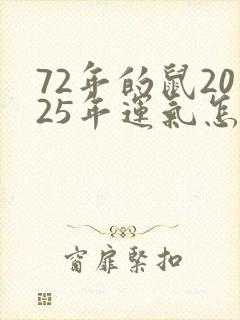 72年的鼠20
25年運氣怎
窗扉緊扣